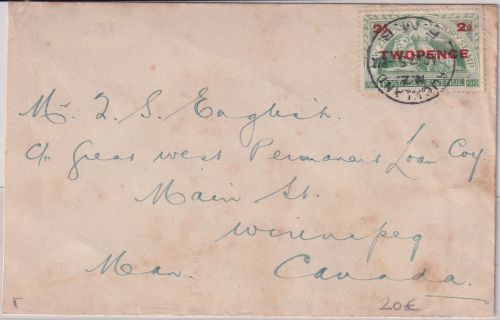 2d 2d
TWOPENCE
AUCKLAND
N.Z.
Mr. T. S. English.
c/o Great West Permanent Loan Coy.
Main St.
Winnipeg
Man. Canada.
20£